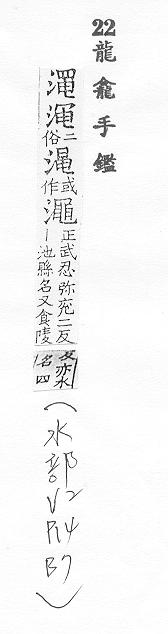 22龍龕手鑑
澠渑二俗澠或作澠正武忍弥兖二反
—池縣名又食陵
反亦水名四
（水部V2P14B7）